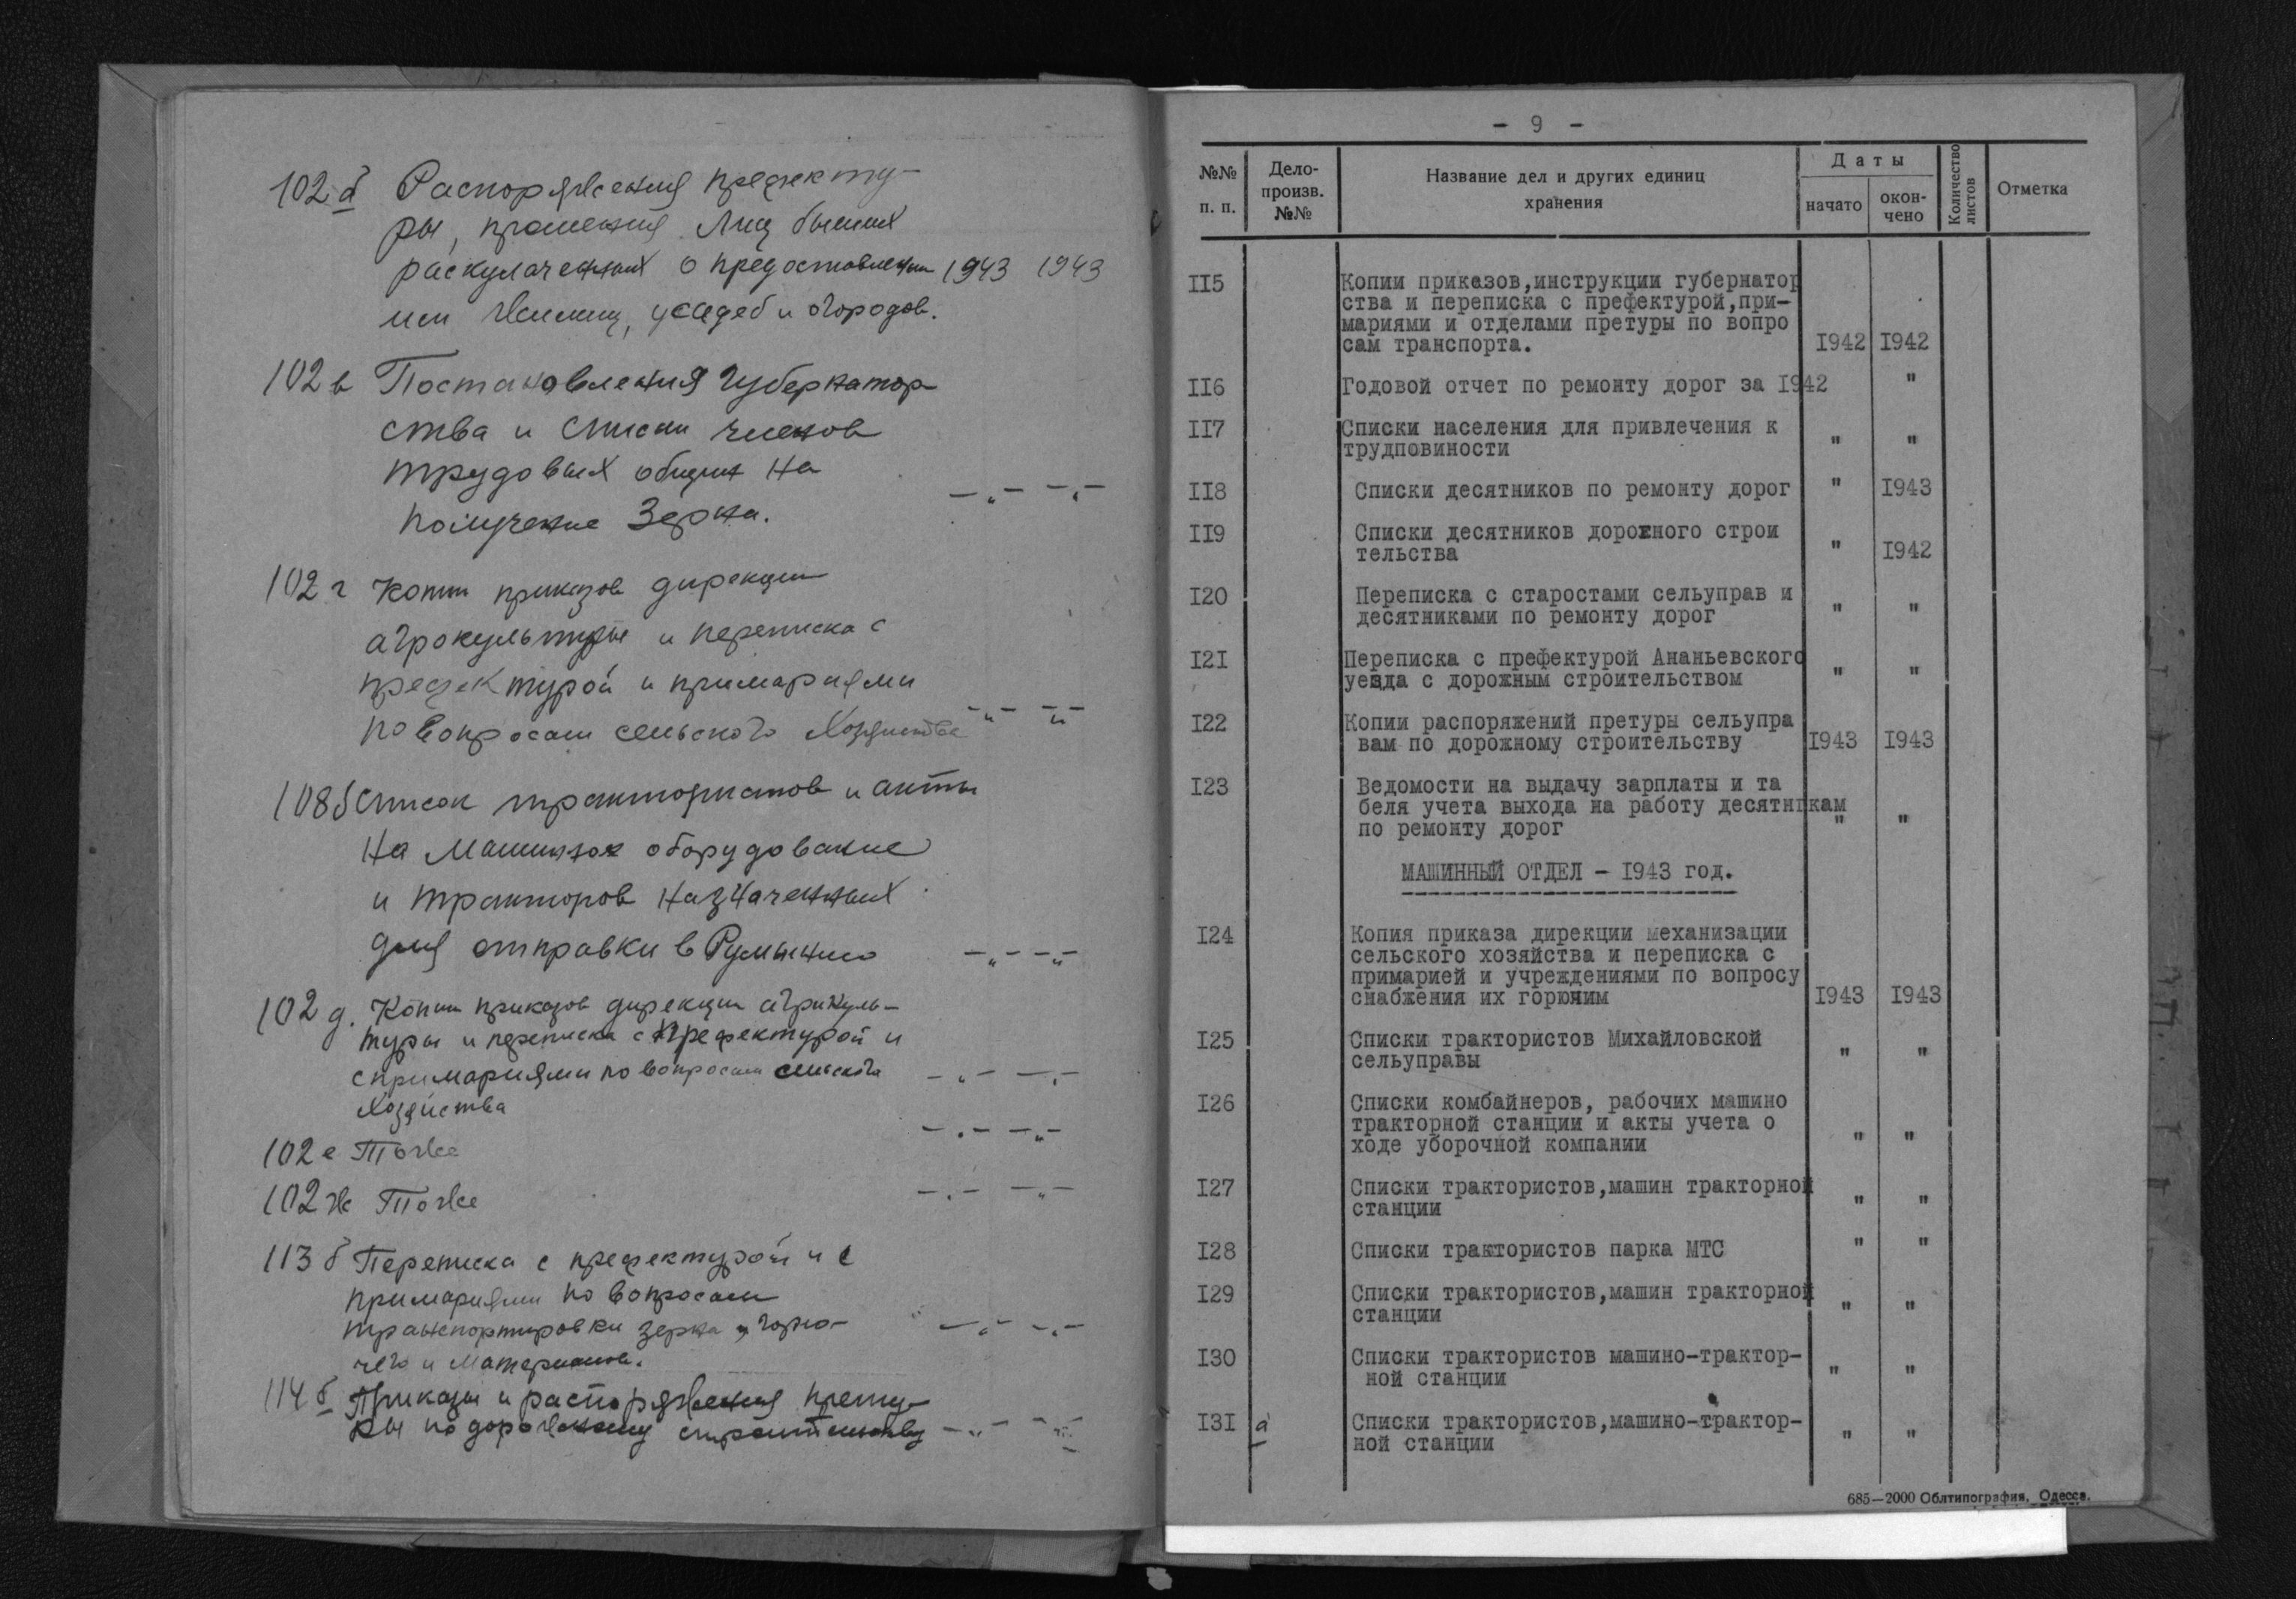 102 б Распоряжения префекту-
ры, прошения лиц бывших
раскулаченных о предоставлении 1943 1943
им жилищ, усадеб и огородов.
102 в Постановления Губернатор
ства и списки членов
трудовых общин на
получение зерна. -"- -"-
102 г Копии приказов дирекции
агрокультуры и переписка с
префектурой и примариями
по вопросам сельского хозяйства -"- -"-
108 б Список трактористов и акты
на машинное оборудование
и тракторов назначенных
для отправки в Румынию -"- -"-
102 д. Копии приказов дирекции агрикуль-
туры и переписка с префектурой и
с примариями по вопросам сельского -"- -"-
хозяйства
102 е То же -"- -"-
102 ж То же -"- -"-
113 б Переписка с префектурой и с
примариями по вопросам
транспортировки зерна, горю- -"- -"-
чего и материалов.
114 б Приказы и распоряжения прету-
ры по дорожному строительству -"- -"-
- 9 -
№№ п. п.
Дело-
произв.
№№
Название дел и других единиц
хранения
Даты
начато
окон-
чено
Количество
листов
Отметка
II5 Копии приказов,инструкции губернатор
ства и переписка с префектурой,при-
мариями и отделами претуры по вопро
сам транспорта. I942 I942
II6 Годовой отчет по ремонту дорог за I942 "
II7 Списки населения для привлечения к
трудповиности " "
II8 Списки десятников по ремонту дорог " I943
II9 Списки десятников дорожного строи
тельства " I942
I20 Переписка с старостами сельуправ и
десятниками по ремонту дорог " "
I2I Переписка с префектурой Ананьевского
уезда с дорожным строительством " "
I22 Копии распоряжений претуры сельупра
вам по дорожному строительству I943 I943
I23 Ведомости на выдачу зарплаты и та
беля учета выхода на работу десятникам
по ремонту дорог " "
МАШИННЫЙ ОТДЕЛ - I943 год.
I24 Копия приказа дирекции механизации
сельского хозяйства и переписка с
примарией и учреждениями по вопросу
снабжения их горючим I943 I943
I25 Списки трактористов Михайловской
сельуправы " "
I26 Списки комбайнеров, рабочих машино
тракторной станции и акты учета о
ходе уборочной компании " "
I27 Списки трактористов,машин тракторной
станции " "
I28 Списки трактористов парка МТС " "
I29 Списки трактористов,машин тракторной
станции " "
I30 Списки трактористов машино-трактор-
ной станции " "
I3I а Списки трактористов,машино-трактор-
ной станции " "
685—2000 Облтипография, Одесса.